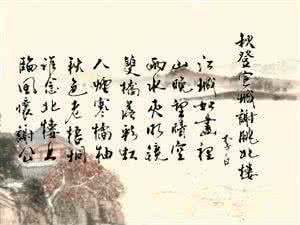 秋登宣城謝朓北樓
李白
江城如畫裡
山晚望晴空
兩水夾明鏡
雙橋落彩虹
人煙寒橘柚
秋色老梧桐
誰念北樓上
臨風懷謝公